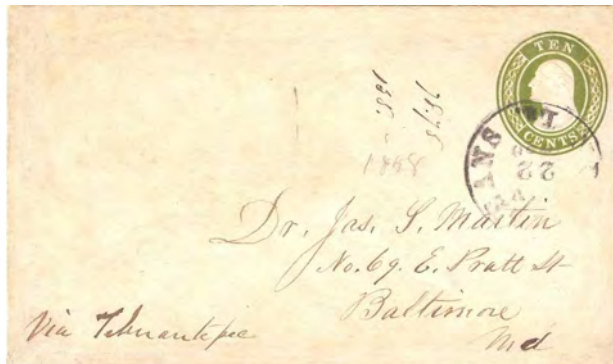 TEN
CENTS
LA
ANS
22
1858
Dr. Jas. S. Martin
No. 69. E. Pratt St
Baltimore
Md
Via Tehuantepec